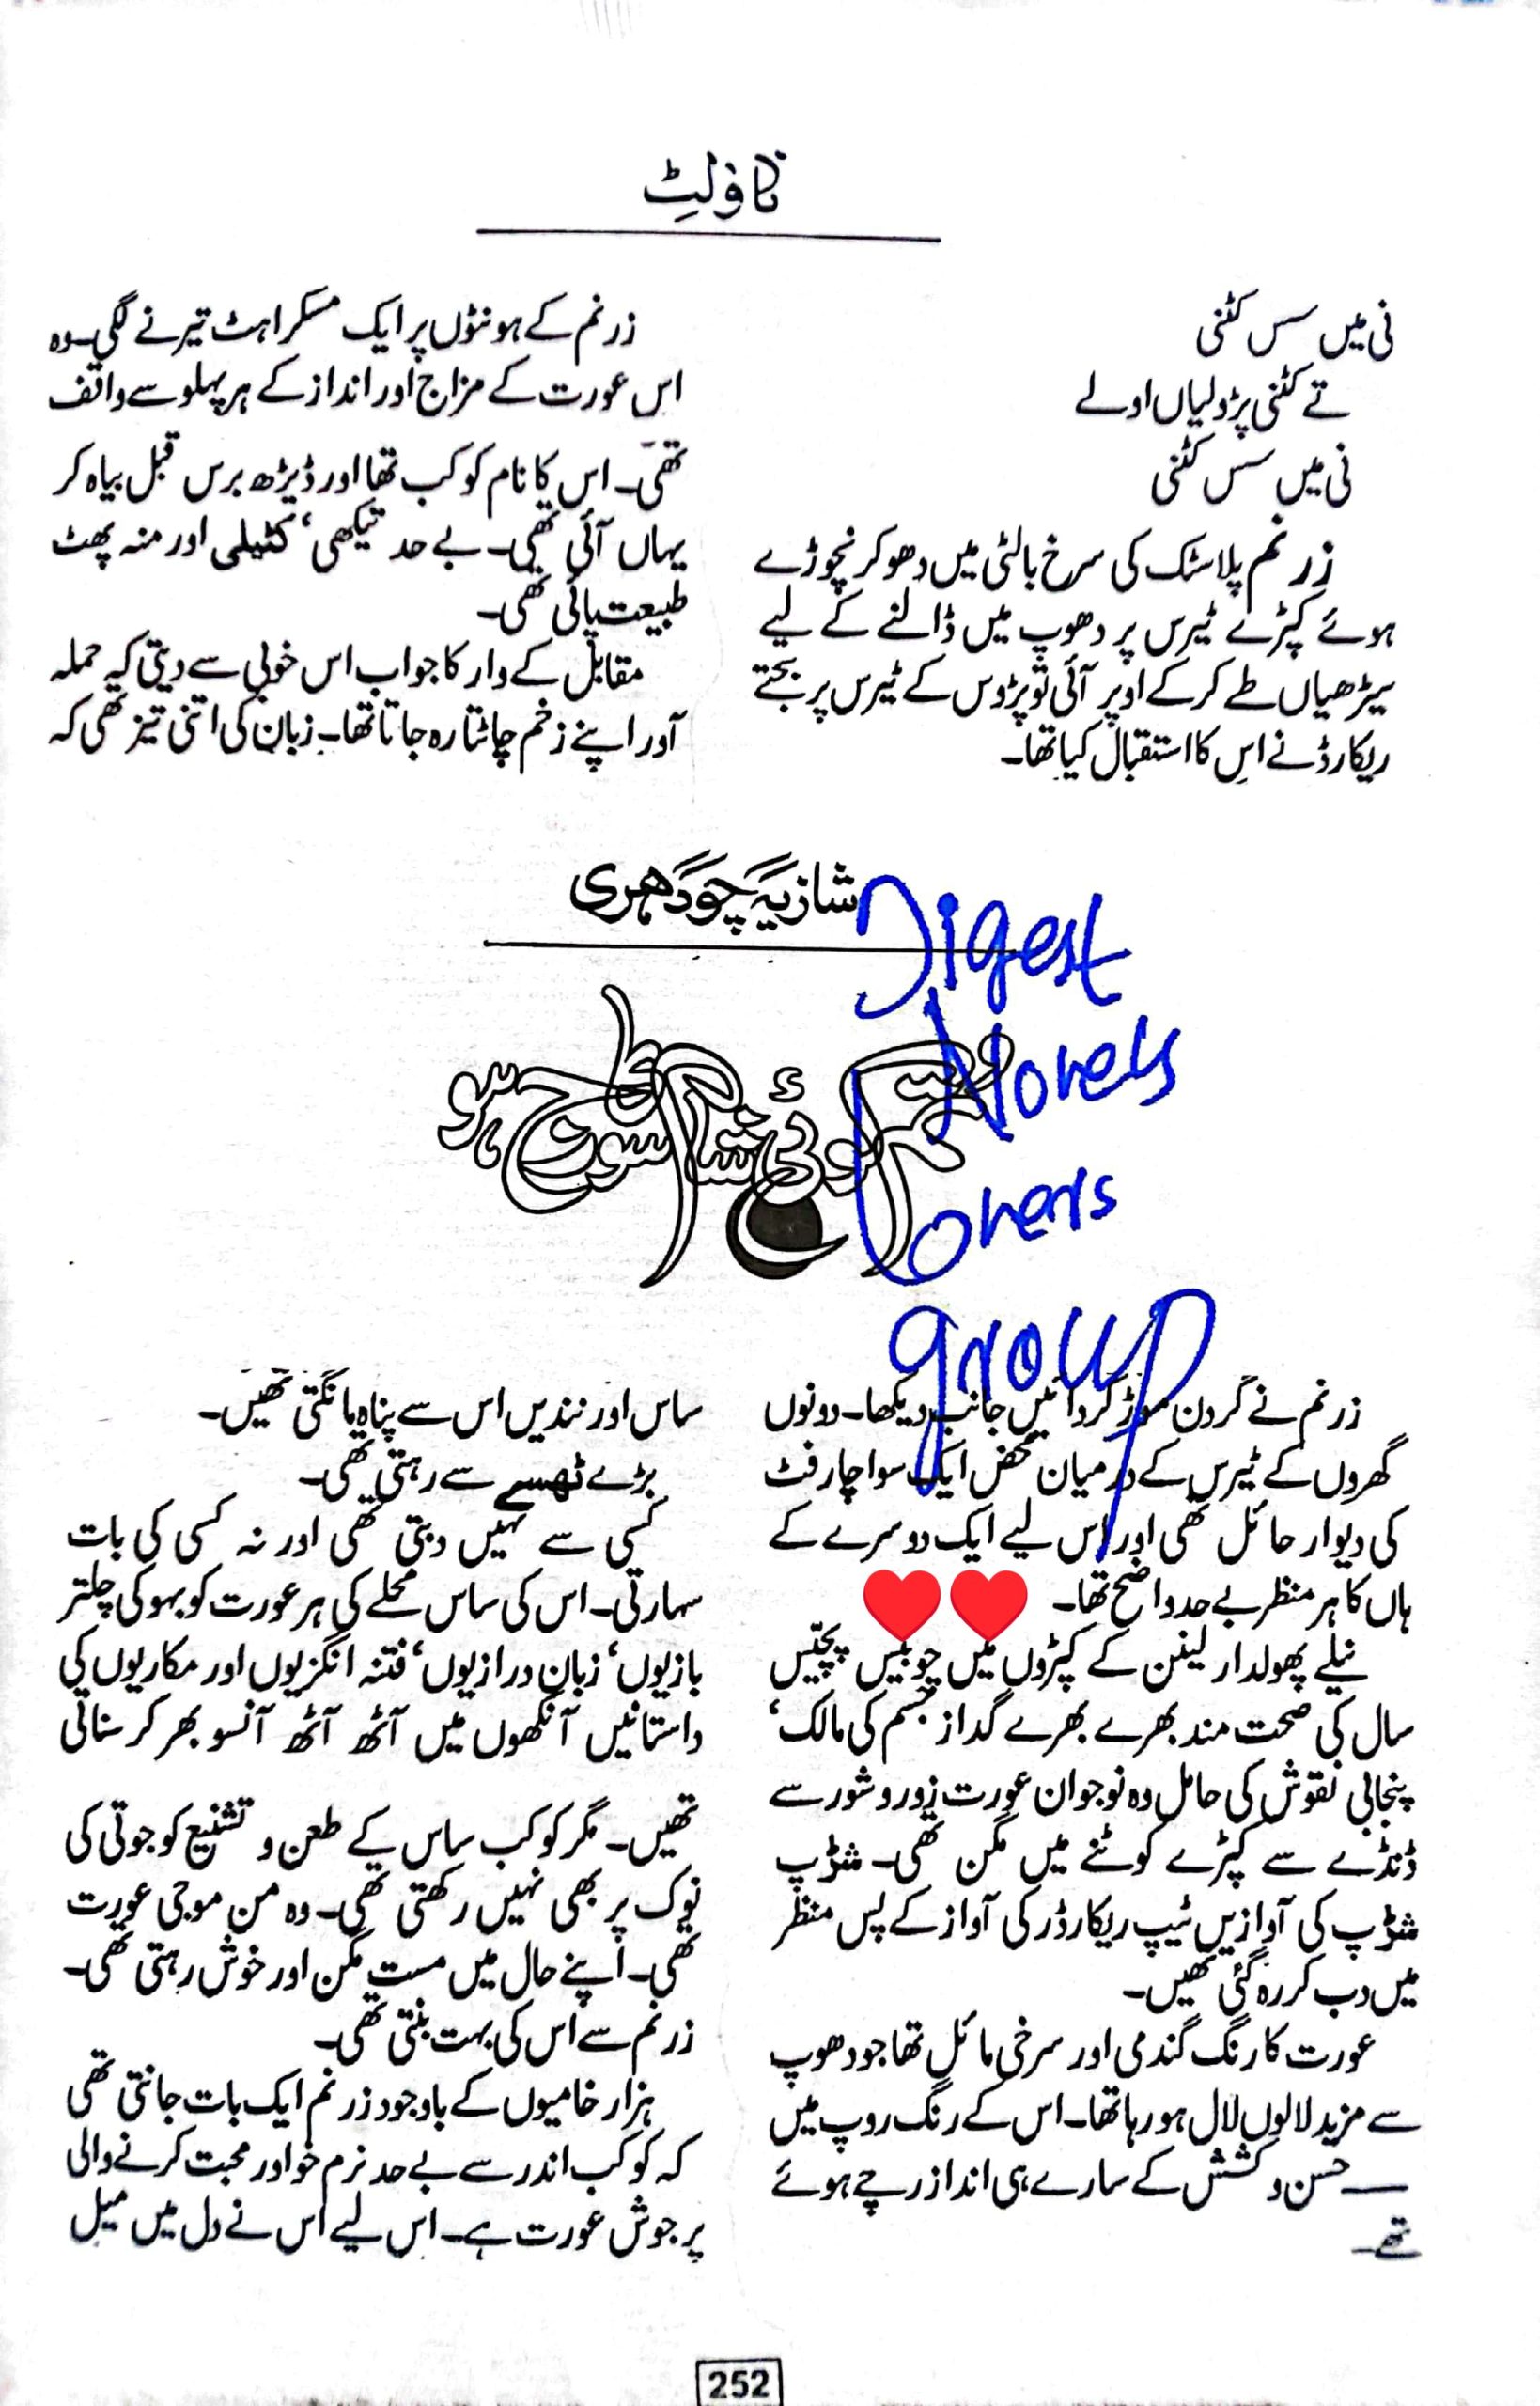 ناولٹ
نی میں سس کٹنی
تے کٹنی پڑولیاں اولے
نی میں سس کٹنی
زرنم پلاسٹک کی سرخ بالٹی میں دھو کر نچوڑے
ہوئے کپڑے ٹیرس پر دھوپ میں ڈالنے کے لیے
سیڑھیاں طے کر کے اوپر آئی تو پڑوس کے ٹیرس پر بجتے
ریکارڈ نے اس کا استقبال کیا تھا۔
زرنم کے ہونٹوں پر ایک مسکراہٹ تیرنے لگی۔ وہ
اس عورت کے مزاج اور انداز کے ہر پہلو سے واقف
تھی۔ اس کا نام کوکب تھا اور ڈیڑھ برس قبل بیاہ کر
یہاں آئی تھی۔ بے حد تیکھی، کٹیلی اور منہ پھٹ
طبیعت پائی تھی۔
مقابل کے وار کا جواب اس خوبی سے دیتی کہ حملہ
آور اپنے زخم چاٹتا رہ جاتا تھا۔ زبان کی اتنی تیز تھی کہ
شازیہ چودھری
کوئی شام سورج ہو
Digest
Novels
Lovers
group
زرنم نے گردن موڑ کر دائیں جانب دیکھا۔ دونوں
گھروں کے ٹیرس کے درمیان محض ایک سوا چار فٹ
کی دیوار حائل تھی اور اس لیے ایک دوسرے کے
ہاں کا ہر منظر بے حد واضح تھا۔
نیلے پھولدار لینن کے کپڑوں میں چوبیس پچیس
سال کی صحت مند بھرے بھرے گداز جسم کی مالک،
پنجابی نقوش کی حامل وہ نوجوان عورت زور و شور سے
ڈنڈے سے کپڑے کوٹنے میں مگن تھی۔ شڑپ
شڑپ کی آوازیں ٹیپ ریکارڈر کی آواز کے پس منظر
میں دب کر رہ گئی تھیں۔
عورت کا رنگ گندمی اور سرخی مائل تھا جو دھوپ
سے مزید لالوں لال ہو رہا تھا۔ اس کے رنگ روپ میں
حسن و کشش کے سارے ہی انداز رچے ہوئے
تھے۔
ساس اور نندیں اس سے پناہ مانگتی تھیں۔
بڑے ٹھسے سے رہتی تھی۔
کسی سے نہیں دبتی تھی اور نہ کسی کی بات
سہارتی۔ اس کی ساس محلے کی ہر عورت کو بہو کی چلتر
بازیوں، زبان درازیوں، فتنہ انگزیوں اور مکاریوں کی
داستانیں آنکھوں میں آٹھ آٹھ آنسو بھر کر سناتی
تھیں۔ مگر کوکب ساس کے طعن و تشنیع کو جوتی کی
نوک پر بھی نہیں رکھتی تھی۔ وہ من موجی عورت
تھی۔ اپنے حال میں مست مگن اور خوش رہتی تھی۔
زرنم سے اس کی بہت بنتی تھی۔
ہزار خامیوں کے باوجود زرنم ایک بات جانتی تھی
کہ کوکب اندر سے بے حد نرم خو اور محبت کرنے والی
پرجوش عورت ہے۔ اس لیے اس نے دل میں میل
252